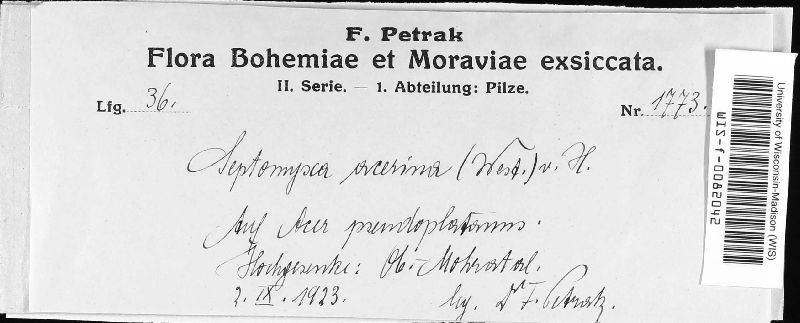 F. Petrak
Flora Bohemiae et Moraviae exsiccata.
II. Serie. — 1. Abteilung: Pilze.
Lfg. 36.
Nr. 1773.
Septomyxa acerina (West.) v. H.
Auf Acer pseudoplatanus.
Hochgesenke: Ob.-Mohratal.
2. IX. 1923.
lg. Dr F. Petrak.
University of Wisconsin-Madison (WIS)
WIS-f-0082042